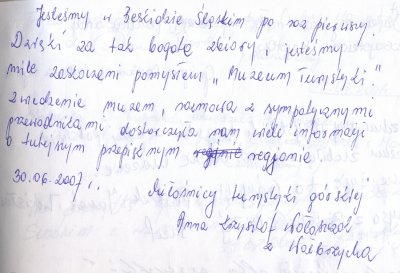 Jesteśmy w Beskidzie Śląskim po raz pierwszy.
Dzięki za tak bogate zbiory i jesteśmy
mile zaskoczeni pomysłem „Muzeum Turystyki."
Zwiedzenie muzem, rozmowa z sympatycznymi
przewodnikami dostarczyła nam wiele informacji
o tutejszym przepięknym regionie
30.06.2007 r.
Miłośnicy turystyki górskiej
Anna Krzysztof
z Wałbrzycha